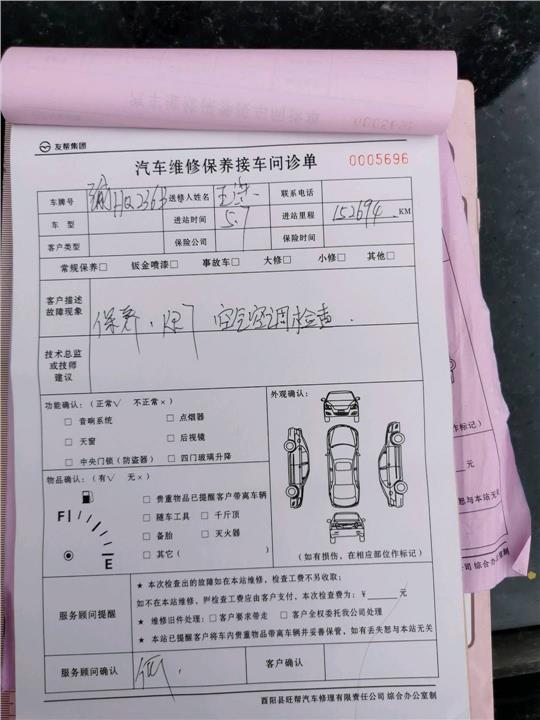 友帮集团
汽车维修保养接车问诊单 0005696
车牌号 渝HQ236 送修人姓名 联系电话
车型 进站时间 5.7 进站里程 152694 KM
客户类型 保险公司 保险时间
常规保养□ 钣金喷漆□ 事故车□ 大修□ 小修□ 其他□
客户描述
故障现象
保养. 空气空调检查.
技术总监
或技师
建议
功能确认：（正常√ 不正常×）
□ 音响系统 □ 点烟器
□ 天窗 □ 后视镜
□ 中央门锁（防盗器） □ 四门玻璃升降
外观确认：
（如有损伤，在相应部位作标记）
物品确认：（有√ 无×）
F E
□ 贵重物品已提醒客户带离车辆
□ 随车工具 □ 千斤顶
□ 备胎 □ 灭火器
□ 其它（
服务顾问提醒
★ 本次检查出的故障如在本站维修，检查工费不另收取；
如不在本站维修，则检查工费应由客户支付，本次检查费为：¥ 元
★ 维修旧件处理：□ 客户要求带走 □ 客户全权委托我公司处理
★ 本站已提醒客户将车内贵重物品带离车辆并妥善保管，如有丢失恕与本站无关
服务顾问确认 客户确认
酉阳县旺帮汽车修理有限责任公司 综合办公室制
作标记）
元
失恕与本站无
任公司 综合办公室制